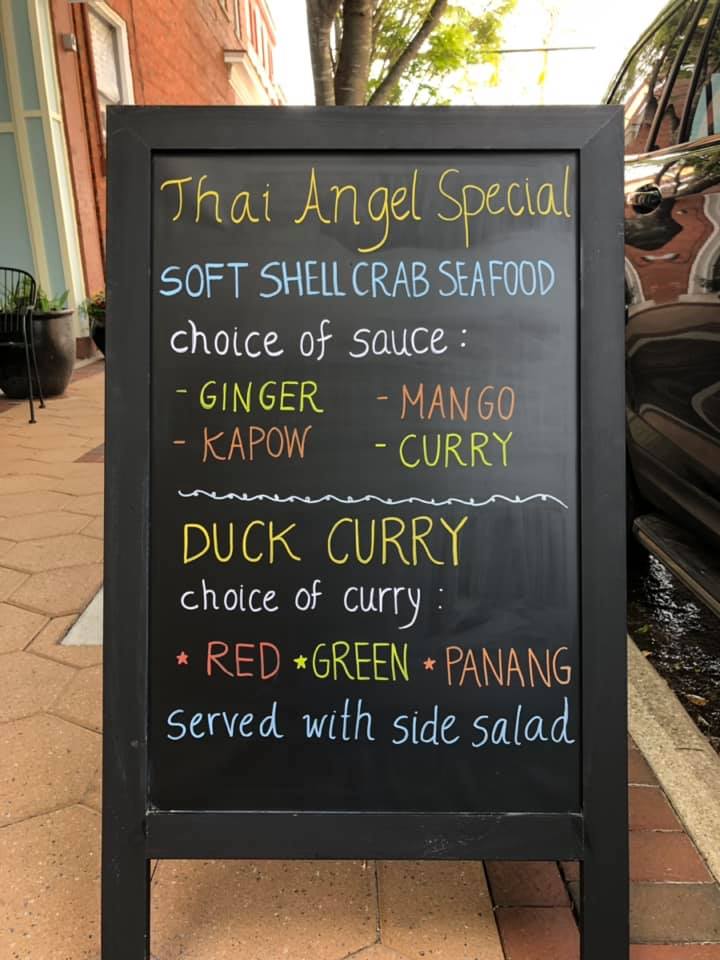 Thai Angel Special
SOFT SHELL CRAB SEAFOOD
choice of sauce :
- GINGER - MANGO
- KAPOW - CURRY
DUCK CURRY
choice of curry :
* RED * GREEN * PANANG
served with side salad